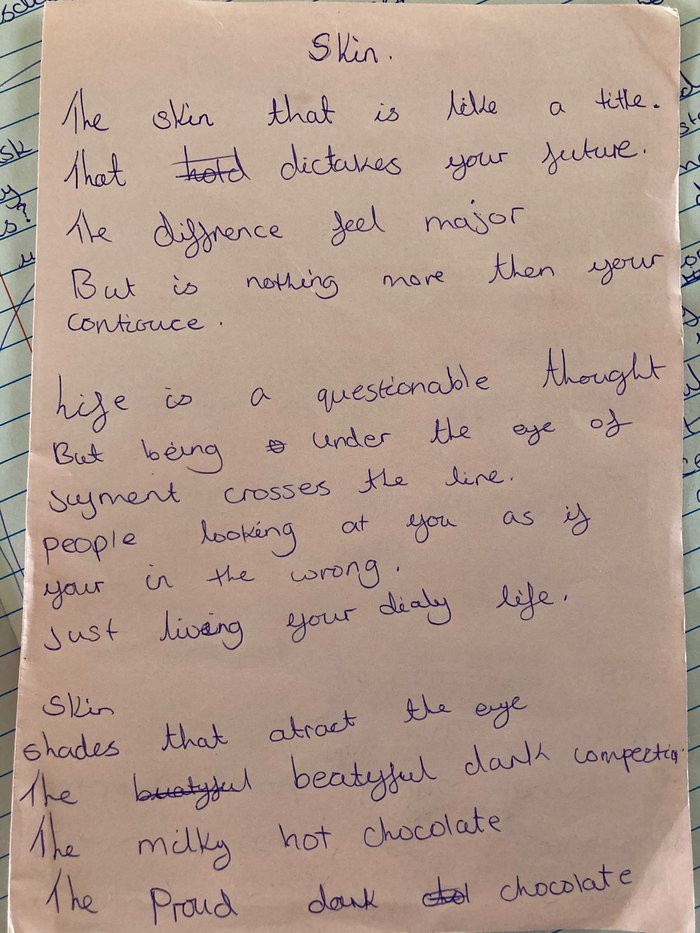 Skin.
The skin that is like a title.
That hold dictakes your future.
The diffrence feel major
But is nothing more then your
Contiouce.
Life is a questionable thought
But being under the eye of
jugment crosses the line.
people looking at you as if
your in the wrong.
Just living your dialy life.
Skin
shades that atract the eye
The buatyful beatyful dark compectio
The milky hot chocolate
The Proud dark chocolate